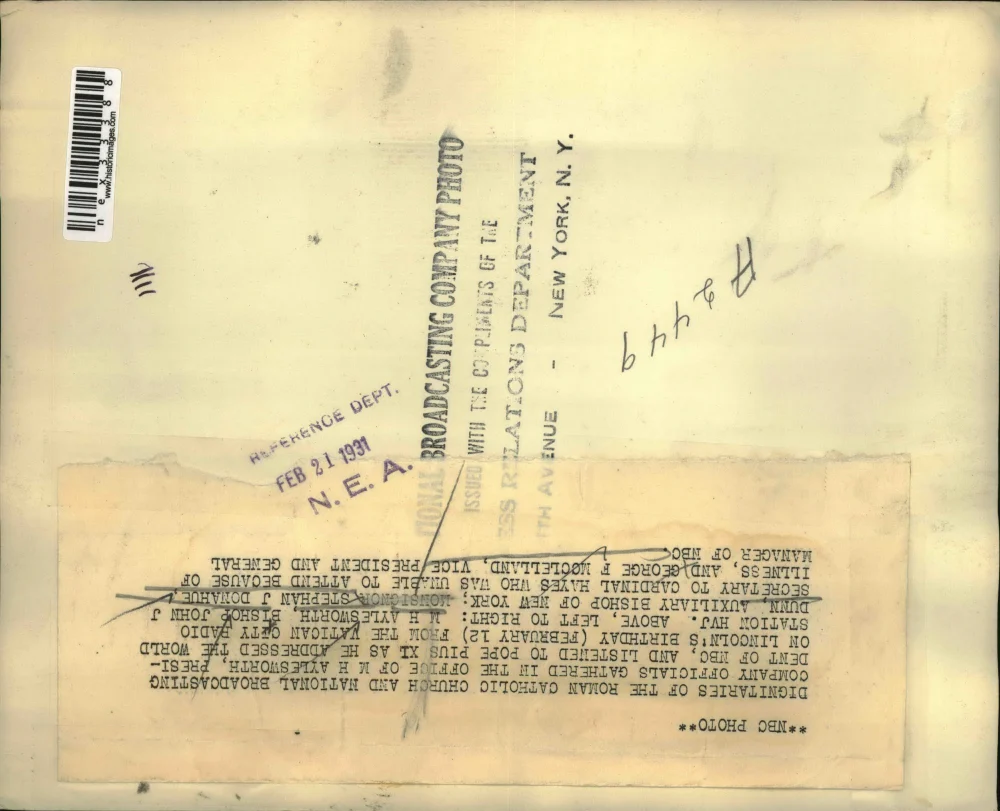 **NBC PHOTO**
DIGNITARIES OF THE ROMAN CATHOLIC CHURCH AND NATIONAL BROADCASTING
COMPANY OFFICIALS GATHERED IN THE OFFICE OF M H AYLESWORTH, PRESI-
DENT OF NBC, AND LISTENED TO POPE PIUS XI AS HE ADDRESSED THE WORLD
ON LINCOLN'S BIRTHDAY (FEBRUARY 12) FROM THE VATICAN CITY RADIO
STATION HVJ. ABOVE, LEFT TO RIGHT: M H AYLESWORTH, BISHOP JOHN J
DUNN, AUXILIARY BISHOP OF NEW YORK; MONSIGNOR STEPHAN J DONAHUE,
SECRETARY TO CARDINAL HAYES WHO WAS UNABLE TO ATTEND BECAUSE OF
ILLNESS, AND GEORGE F MCCLELLAND, VICE PRESIDENT AND GENERAL
MANAGER OF NBC.
TIONAL BROADCASTING COMPANY PHOTO
ISSUED WITH THE COMPLIMENTS OF THE
ESS RELATIONS DEPARTMENT
TH AVENUE - NEW YORK, N. Y.
REFERENCE DEPT.
FEB 21 1931
N. E. A.
A2449
nex33388
www.historicimages.com